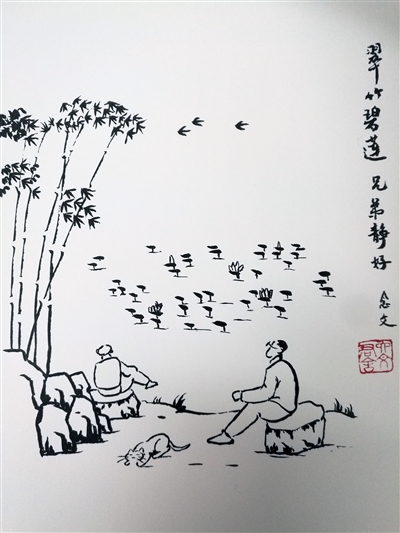 翠竹碧莲 兄弟静好
念文